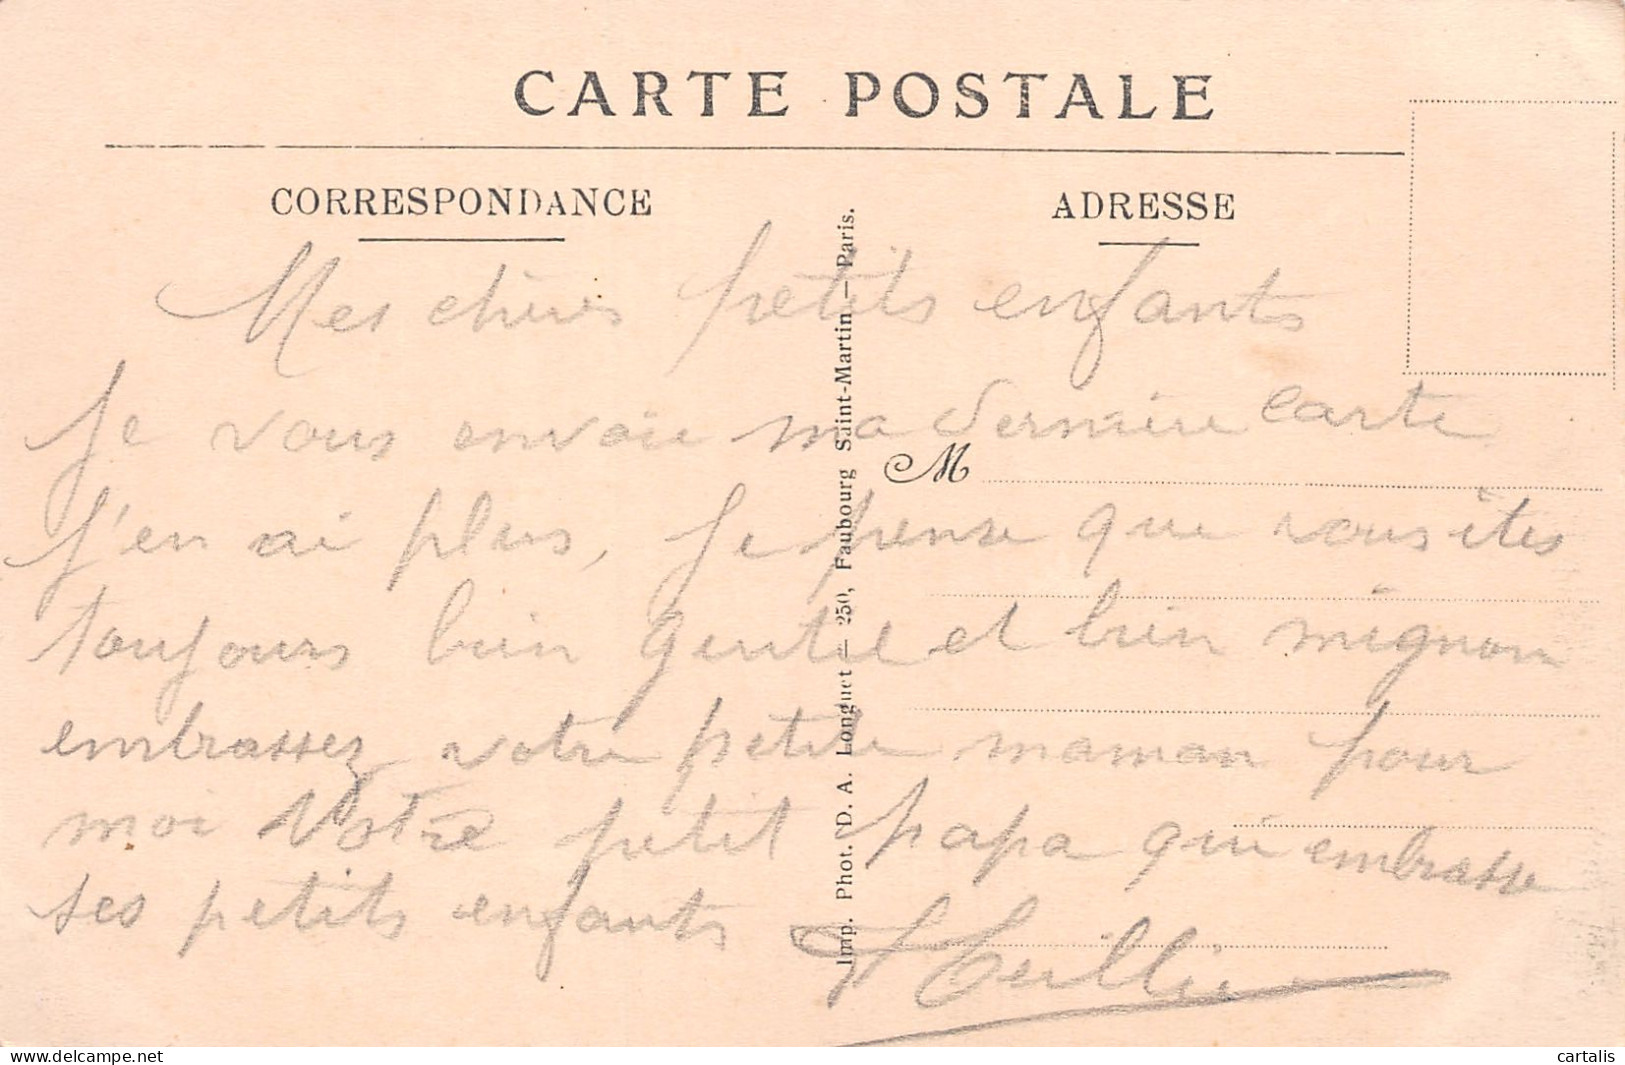 CARTE POSTALE
CORRESPONDANCE
ADRESSE
Mes chères petits enfants
Je vous envoie ma dernière carte
M
J'en ai plus, Je pense que vous êtes
toujours bien gentil et bien mignon
embrassez votre petite maman pour
moi Votre petit papa qui embrasse
ses petits enfants
Imp. Phot. D. A. Longuet — 250, Faubourg Saint-Martin — Paris.
www.delcampe.net
cartalis